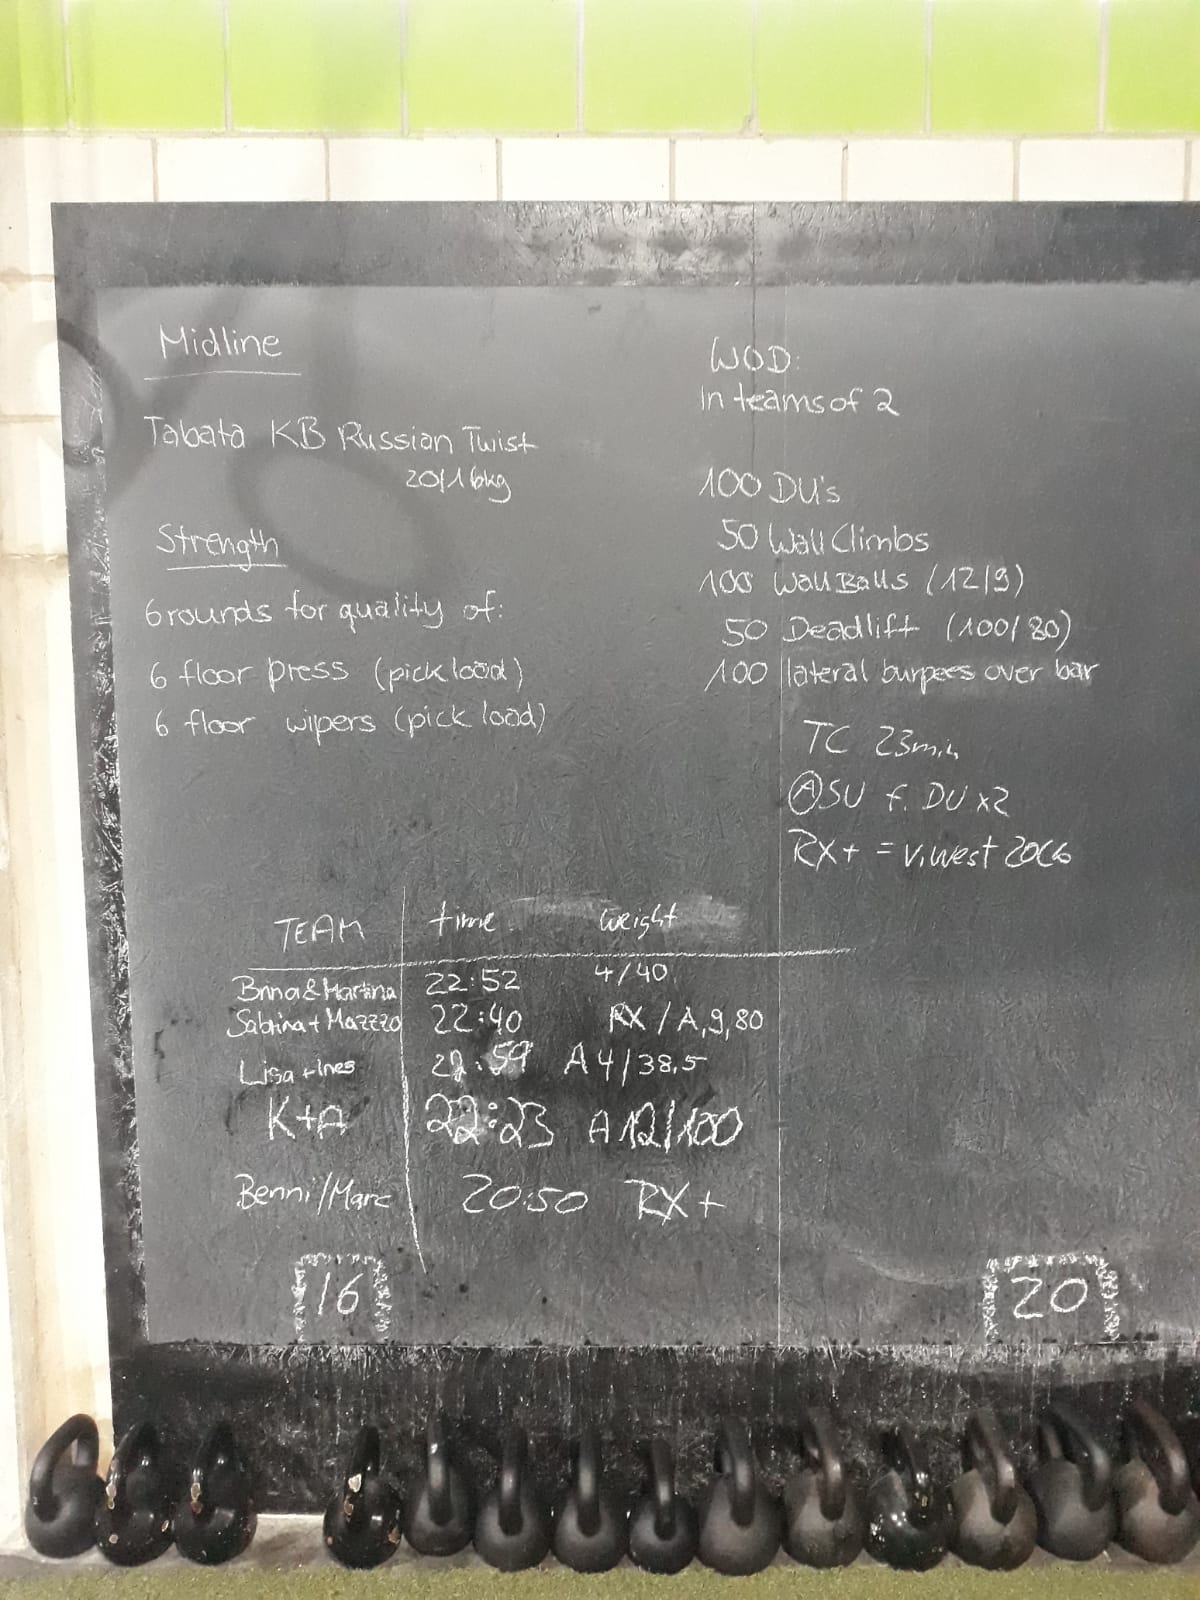 Midline
Tabata KB Russian Twist
20/16kg
Strength
6 rounds for quality of:
6 floor press (pick load)
6 floor wipers (pick load)
WOD:
In teams of 2
100 DU's
50 Wall Climbs
100 Wall Balls (12/9)
50 Deadlift (100/80)
100 lateral burpees over bar
TC 23min
Ⓐ SU f. DU x2
RX+ = v.west
TEAM time weight
& Martina 22:52 4/40
Sabrina + Mazzzo 22:40 RX / A,9,80
Lisa + Ines 22:59 A 4/38,5
K+A 22:23 A 12/100
Benni/Marc 20:50 RX+
16
20